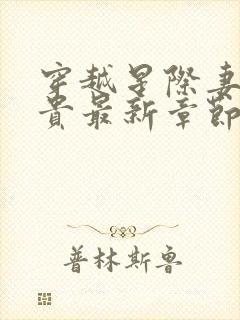 穿越星際妻
貴最新章節
普林斯鲁